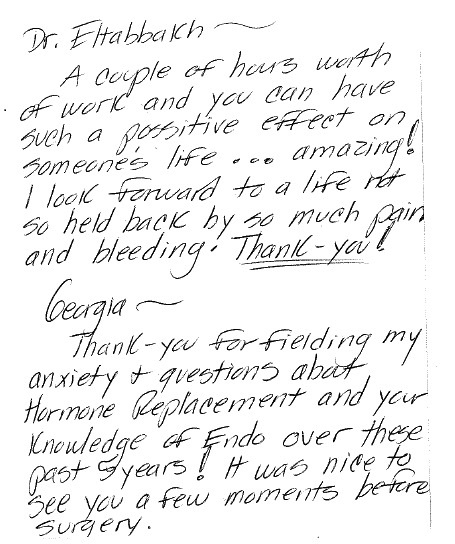 Dr. Eltabbakh ~
A couple of hours worth
of work and you can have
such a possitive effect on
someone's life ... amazing!
I look forward to a life not
so held back by so much pain
and bleeding. Thank-you!
Georgia ~
Thank-you for fielding my
anxiety + questions about
Hormone Replacement and your
Knowledge of Endo over these
past 5 years! It was nice to
see you a few moments before
surgery.